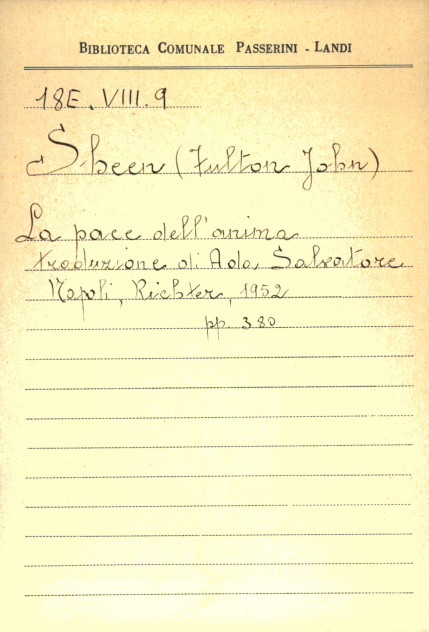 BIBLIOTECA COMUNALE PASSERINI - LANDI
18E. VIII. 9
Sheen (Fulton John)
La pace dell'anima
traduzione di Ada Salvatore
Napoli, Richter, 1952
pp. 380